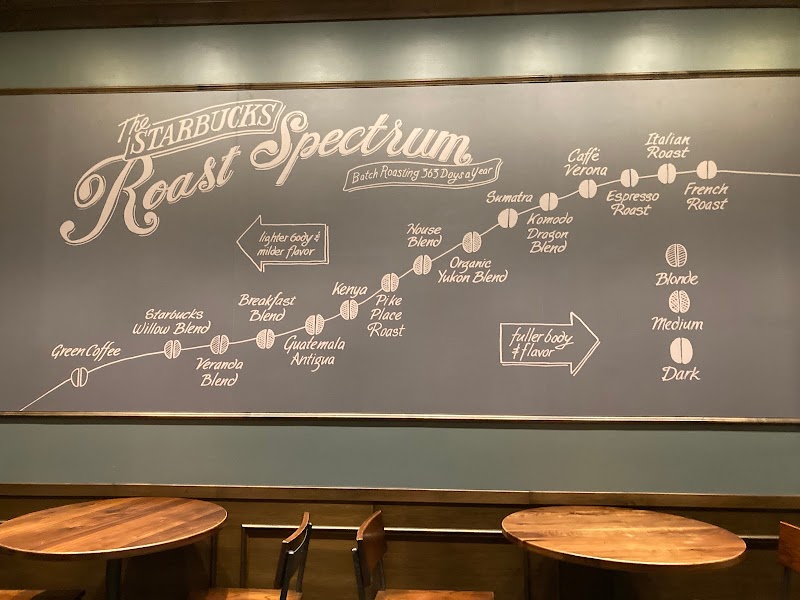 The
STARBUCKS
Roast Spectrum
Batch Roasting 363 Days a Year
lighter body &
milder flavor
Green Coffee
Starbucks
Willow Blend
Veranda
Blend
Breakfast
Blend
Guatemala
Antigua
Kenya
Pike
Place
Roast
House
Blend
Organic
Yukon Blend
Sumatra
Komodo
Dragon
Blend
Caffè
Verona
Espresso
Roast
Italian
Roast
French
Roast
fuller body
& flavor
Blonde
Medium
Dark